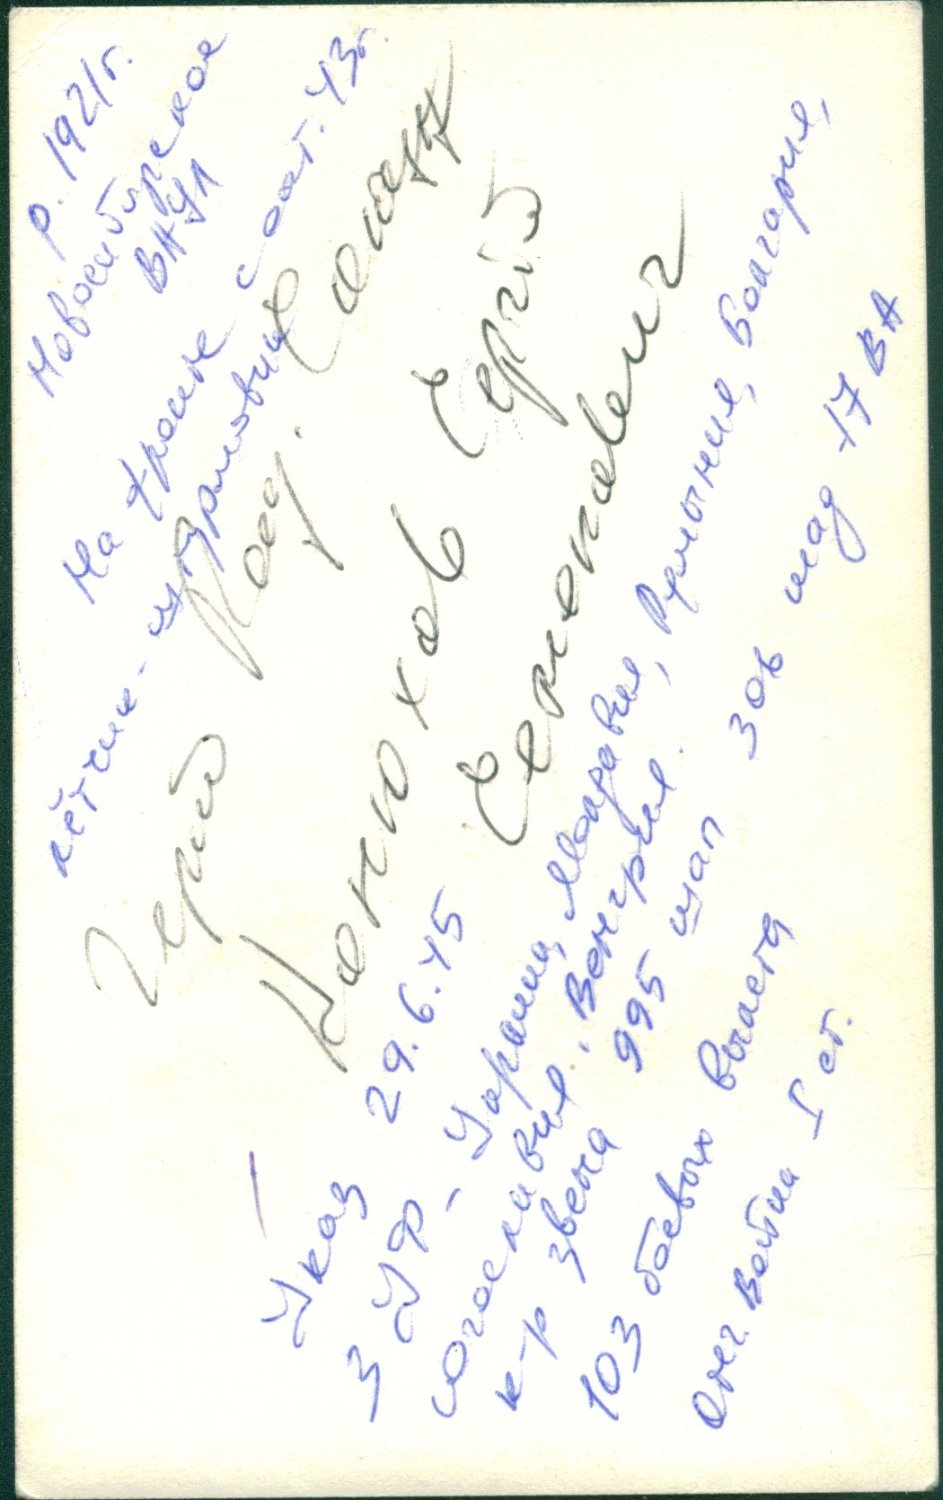 р. 1921г.
Новосибирское
ВАШ
На фронте с окт. 43г.
лётчик-штурмовик
Герой Сов. Союза
Конюхов Сергій
Семенович
Указ 29.6.45
3 УФ - Украина, Молдавия, Румыния, Болгария,
Югославия, Венгрия.
к-р звена 995 шап 306 шад 17 ВА
103 боевых вылета
Отеч. Война I ст.